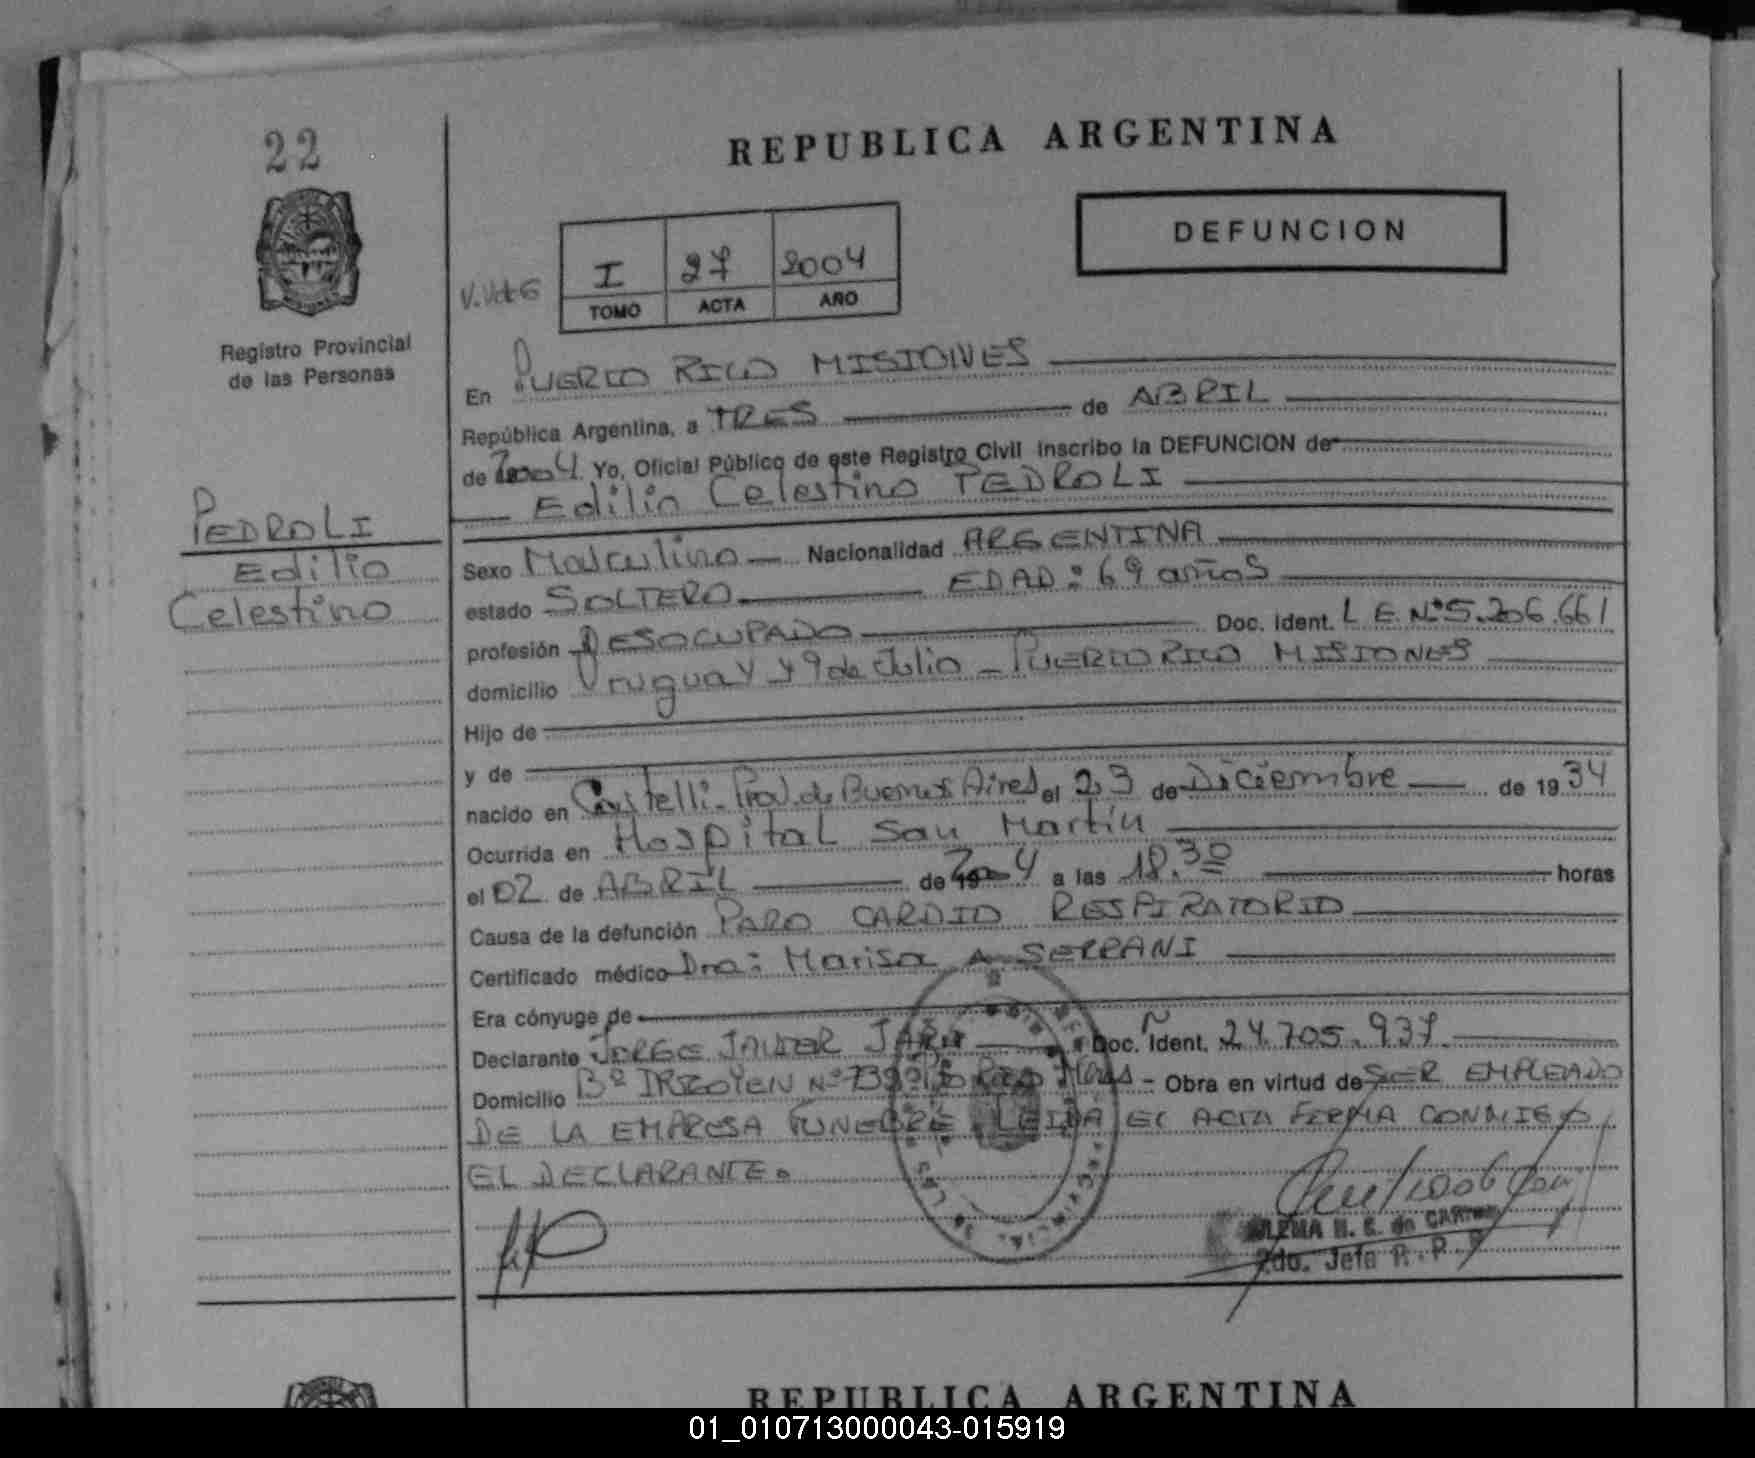 22
REPUBLICA ARGENTINA
DEFUNCION
I 27 2004
TOMO ACTA AÑO
Registro Provincial
de las Personas
PEDROLI
Edilio
Celestino
En PUERTO RICO MISIONES
República Argentina, a TRES de ABRIL
de 2004 Yo, Oficial Público de este Registro Civil inscribo la DEFUNCION de
Edilio Celestino PEDROLI
Sexo Masculino Nacionalidad ARGENTINA
estado SOLTERO EDAD: 69 años
profesión DESOCUPADO Doc. ident. L E. Nº 5.206.661
domicilio Uruguay y 9 de Julio - PUERTO RICO MISIONES
Hijo de
y de
nacido en Castelli - Prov. de Buenos Aires el 23 de Diciembre de 1934
Ocurrida en Hospital San Martín
el 02 de ABRIL de 2004 a las 18.30 horas
Causa de la defunción PARO CARDIO RESPIRATORIO
Certificado médico Dra: Marisa A. SERRANI
Era cónyuge de
Declarante JORGE JAVIER JARA Doc. Ident. 24.705.937
Domicilio Bº IRIGOYEN Nº Pto Rico Mnes - Obra en virtud de SER EMPLEADO
DE LA EMPRESA FUNEBRE. LEIDA EL ACTA FIRMA CONMIGO
EL DECLARANTE.
2do. Jefe R. P. P
REPUBLICA ARGENTINA
01_010713000043-015919